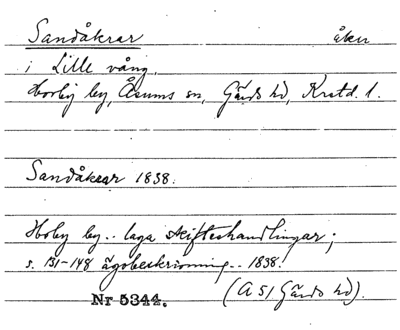 Sandåkrar åker
i Lille vång.
Horby by, Åsums sn, Gärds hd, Krstd. l.
Sandåkrar 1838.
Hoby by.. laga skifteshandlingar;
s. 131-148 ägobeskrivning.. 1838.
Nr 5344. (A 51 Gärds hd).